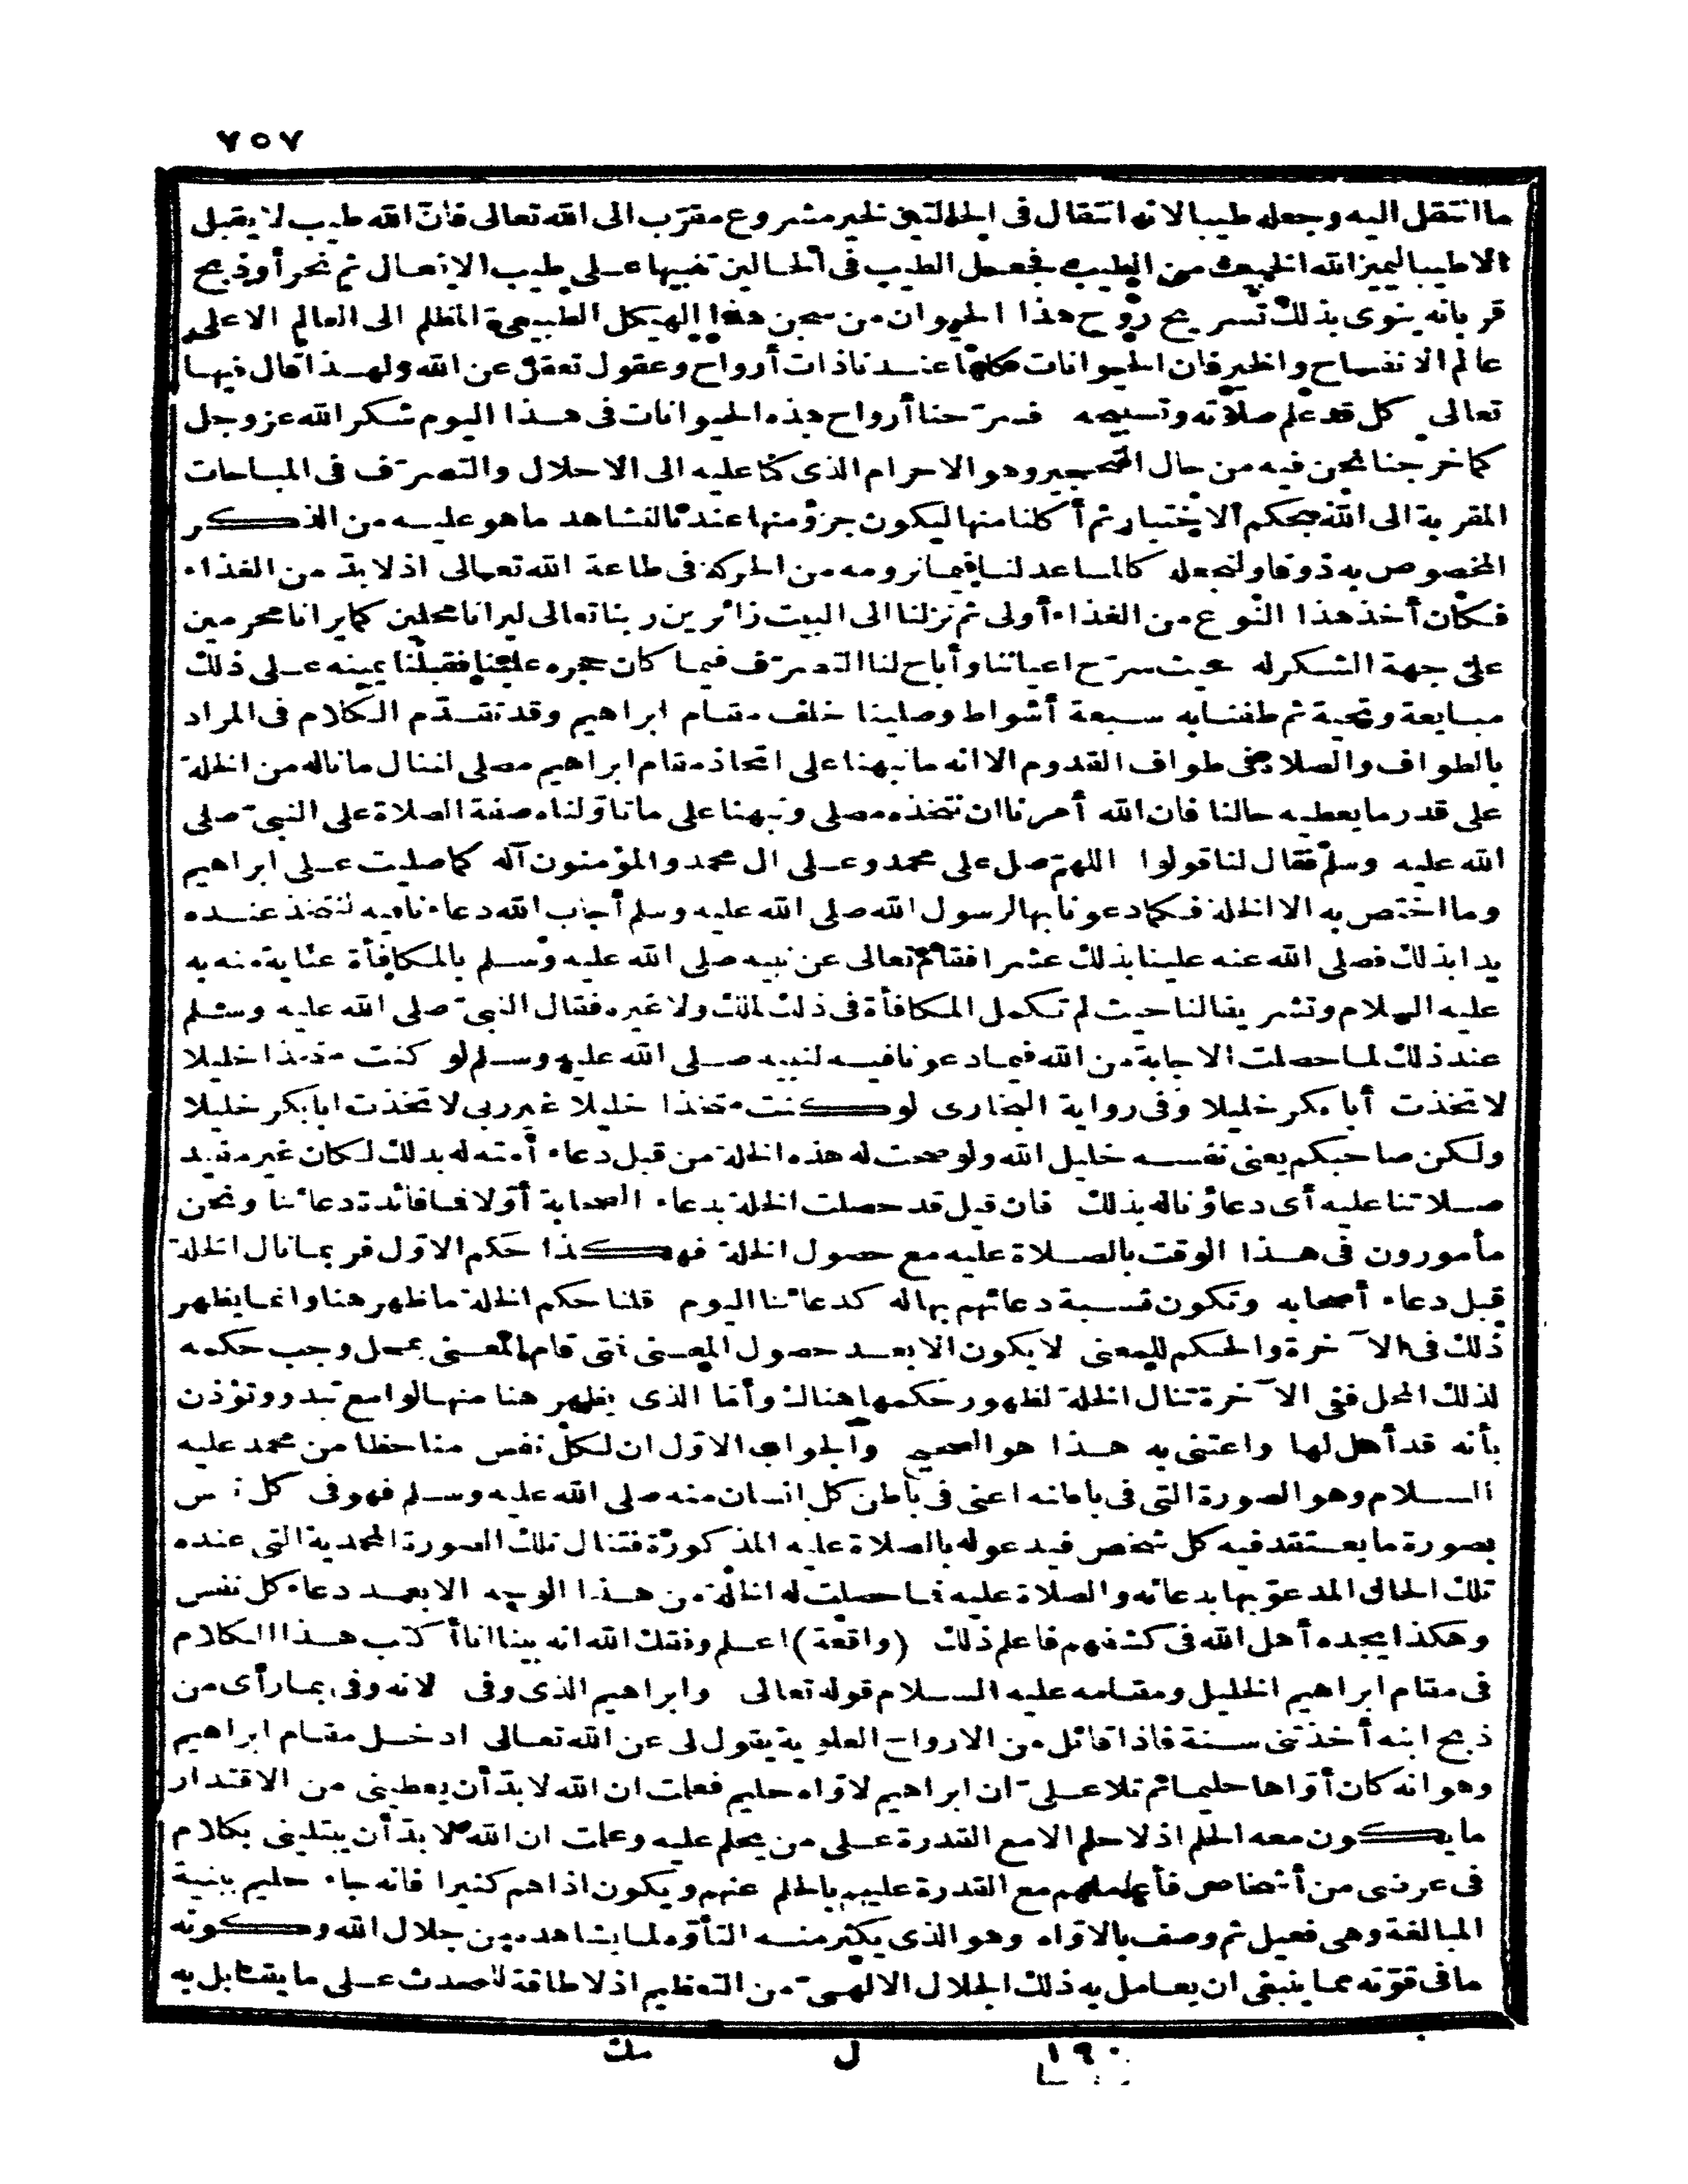 ٧٥٧
ما انتقل اليه وجعله طيبا لانه انتقال فى الحالتين لخير مشروع مقرّب الى الله تعالى فانّ الله طيب لا يقبل
الا طيبا ليميز الله الخبيث من الطيب فجعل الطيب فى الحالين تنبيها على طيب الافعال ثم نحر أو ذبح
قربانه ينوى بذلك تسريح روح هذا الحيوان من سجن هذا الهيكل الطبيعى المظلم الى العالم الاعلى
عالم الانفساح والخير فان الحيوانات كلها عندنا ذات أرواح وعقول تعقل عن الله ولهذا قال فيها
تعالى كل قد علم صلاته وتسبيحه فسرّحنا أرواح هذه الحيوانات فى هذا اليوم شكر الله عز وجل
كما خرجنا نحن فيه من حال التحجير وهو الاحرام الذى كنا عليه الى الاحلال والتصرّف فى المباحات
المقربة الى الله بحكم الاختيار ثم أكلنا منها ليكون جزؤ منها عندنا لنشاهد ما هو عليه من الذكر
المخصوص به ذوقا ولنجعله كالمساعد لنا فيما نرومه من الحركة فى طاعة الله تعالى اذ لا بدّ من الغذاء
فكان أخذ هذا النوع من الغذاء أولى ثم نزلنا الى البيت زائرين ربنا تعالى ليرانا محلين كما يرانا محرمين
على جهة الشكر له حيث سرّح اعياننا وأباح لنا التصرّف فيما كان حجره علينا فقبلنا يمينه على ذلك
مبايعة وتحية ثم طفنا به سبعة أشواط وصلينا خلف مقام ابراهيم وقد تقدّم الكلام فى المراد
بالطواف والصلاة فى طواف القدوم الا انه ما نبهنا على اتخاذ مقام ابراهيم مصلى لننال ما ناله من الخلة
على قدر ما يعطيه حالنا فان الله أمرنا ان نتخذه مصلى ونبهنا على ما تأوّلناه صفة الصلاة على النبىّ صلى
الله عليه وسلم فقال لنا قولوا اللهمّ صل على محمد وعلى ال محمد والمؤمنون آله كما صليت على ابراهيم
وما اختص به الا الخلة فكما دعونا بها لرسول الله صلى الله عليه وسلم أجاب الله دعاءنا فيه لنتخذ عنده
يدا بذلك فصلى الله عنه علينا بذلك عشرا فقام تعالى عن نبيه صلى الله عليه وسلم بالمكافأة عناية منه به
عليه السلام وتشريفا لنا حيث لم تكمل المكافأة فى ذلك لملك ولا غيره فقال النبىّ صلى الله عليه وسلم
عند ذلك لما حصلت الاجابة من الله فيما دعونا فيه لنبيه صلى الله عليه وسلم لو كنت متخذا خليلا
لاتخذت أبا بكر خليلا وفى رواية البخارى لو كنت متخذا خليلا غير ربى لاتخذت ابا بكر خليلا
ولكن صاحبكم يعنى نفسه خليل الله ولو صحت له هذه الخلة من قبل دعاء أمته له بذلك لكان غير مفيد
صلاتنا عليه أى دعاؤنا له بذلك فان قيل قد حصلت الخلة بدعاء الصحابة أوّلا فما فائدة دعائنا ونحن
مأمورون فى هذا الوقت بالصلاة عليه مع حصول الخلة فهكذا حكم الاوّل فربما نال الخلة
قبل دعاء أصحابه وتكون نسبة دعائهم بها له كدعائنا اليوم قلنا حكم الخلة ما ظهر هنا وانما يظهر
ذلك فى الآخرة والحكم للمعنى لا يكون الا بعد حصول المعنى فتى قام المعنى بمحل وجب حكمه
لذلك المحل ففى الآخرة تنال الخلة لظهور حكمها هنالك وأمّا الذى يظهر هنا منها لوامع تبدو وتؤذن
بأنه قد أهل لها واعتنى به هذا هو الصحيح والجواب الاوّل ان لكل نفس منا حظا من محمد عليه
السلام وهو الصورة التى فى باطنه اعنى فى باطن كل انسان منه صلى الله عليه وسلم فهو فى كل نفس
بصورة ما يعتقد فيه كل شخص فيدعو له بالصلاة عليه المذكورة فتنال تلك الصورة المحمدية التى عنده
تلك الحال المدعوّ بها بدعائه والصلاة عليه فما حصلت له الخلة من هذا الوجه الا بعد دعاء كل نفس
وهكذا يجده أهل الله فى كشفهم فاعلم ذلك (واقعة) اعلم وفقك الله انه بينا انا أكتب هذا الكلام
فى مقام ابراهيم الخليل ومقامه عليه السلام قوله تعالى وابراهيم الذى وفى لانه وفى بما رأى من
ذبح ابنه أخذتنى سنة فاذا قائل من الارواح العلوية يقول لى عن الله تعالى ادخل مقام ابراهيم
وهو انه كان أوّاها حليما ثم تلا علىّ ان ابراهيم لاوّاه حليم فعلمت ان الله لا بدّ أن يعطينى من الاقتدار
ما يكون معه الحلم اذ لا حلم الا مع القدرة على من يحلم عليه وعلمت ان الله لا بدّ أن يبتلينى بكلام
فى عرضى من أشخاص فأعاملهم مع القدرة عليهم بالحلم عنهم ويكون اذاهم كثيرا فانه جاء حليم ببنية
المبالغة وهى فعيل ثم وصف بالاوّاه وهو الذى يكثر منه التأوّه لما يشاهده من جلال الله وكونه
ما فى قوّته مما ينبغى ان يعامل به ذلك الجلال الالهىّ من التعظيم اذ لا طاقة للمحدث على ما يقابل به
١٩٠ ل مك